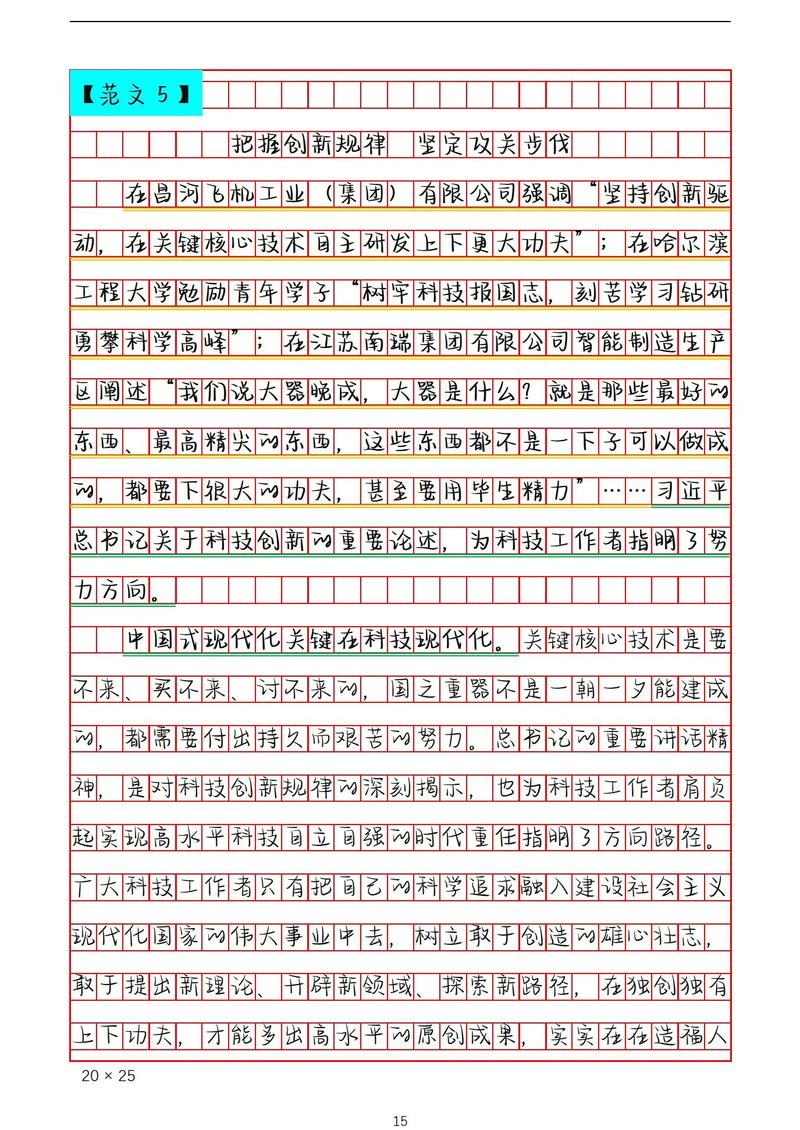 【范文5】
把握创新规律 坚定攻关步伐
在昌河飞机工业（集团）有限公司强调“坚持创新驱
动，在关键核心技术自主研发上下更大功夫”；在哈尔滨
工程大学勉励青年学子“树牢科技报国志，刻苦学习钻研
勇攀科学高峰”；在江苏南瑞集团有限公司智能制造生产
区阐述“我们说大器晚成，大器是什么？就是那些最好的
东西、最高精尖的东西，这些东西都不是一下子可以做成
的，都要下很大的功夫，甚至要用毕生精力”……习近平
总书记关于科技创新的重要论述，为科技工作者指明了努
力方向。
中国式现代化关键在科技现代化。关键核心技术是要
不来、买不来、讨不来的，国之重器不是一朝一夕能建成
的，都需要付出持久而艰苦的努力。总书记的重要讲话精
神，是对科技创新规律的深刻揭示，也为科技工作者肩负
起实现高水平科技自立自强的时代重任指明了方向路径。
广大科技工作者只有把自己的科学追求融入建设社会主义
现代化国家的伟大事业中去，树立敢于创造的雄心壮志，
敢于提出新理论、开辟新领域、探索新路径，在独创独有
上下功夫，才能多出高水平的原创成果，实实在在造福人
20 × 25
15